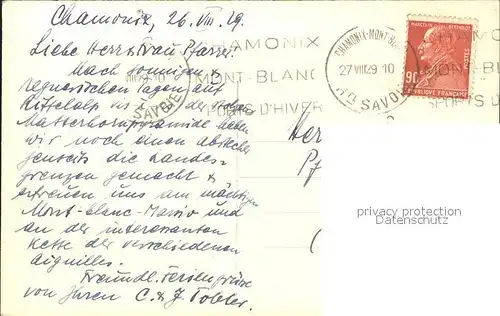 Chamonix, 26. VIII. 29.
Liebe Herr & Frau Pfarrer!
Nach sonnigen &
regnerischen Tagen auf
Riffelalp vis à vis der stolzen
Matterhornpyramide haben
wir noch einen Abstecher
jenseits die Landes-
grenzen gemacht &
erfreuen uns am mächtigen
Mont-blanc-Massiv und
an der interessanten
Kette der verschiedenen
Aiguilles.
Freundl. Feriengrüsse
von Ihren C. & J. Tobler.
SAVOIE
CHAMONIX
MONT-BLANC
SPORTS D'HIVER
CHAMONIX-MONT-B
27 VIII 29 10
Hte SAVOIE
MARCELIN BERTHELOT
90c
POSTES
REPUBLIQUE FRANÇAISE
MONT-BLANC
SPORTS D'
Her
Pf
privacy protection
Datenschutz